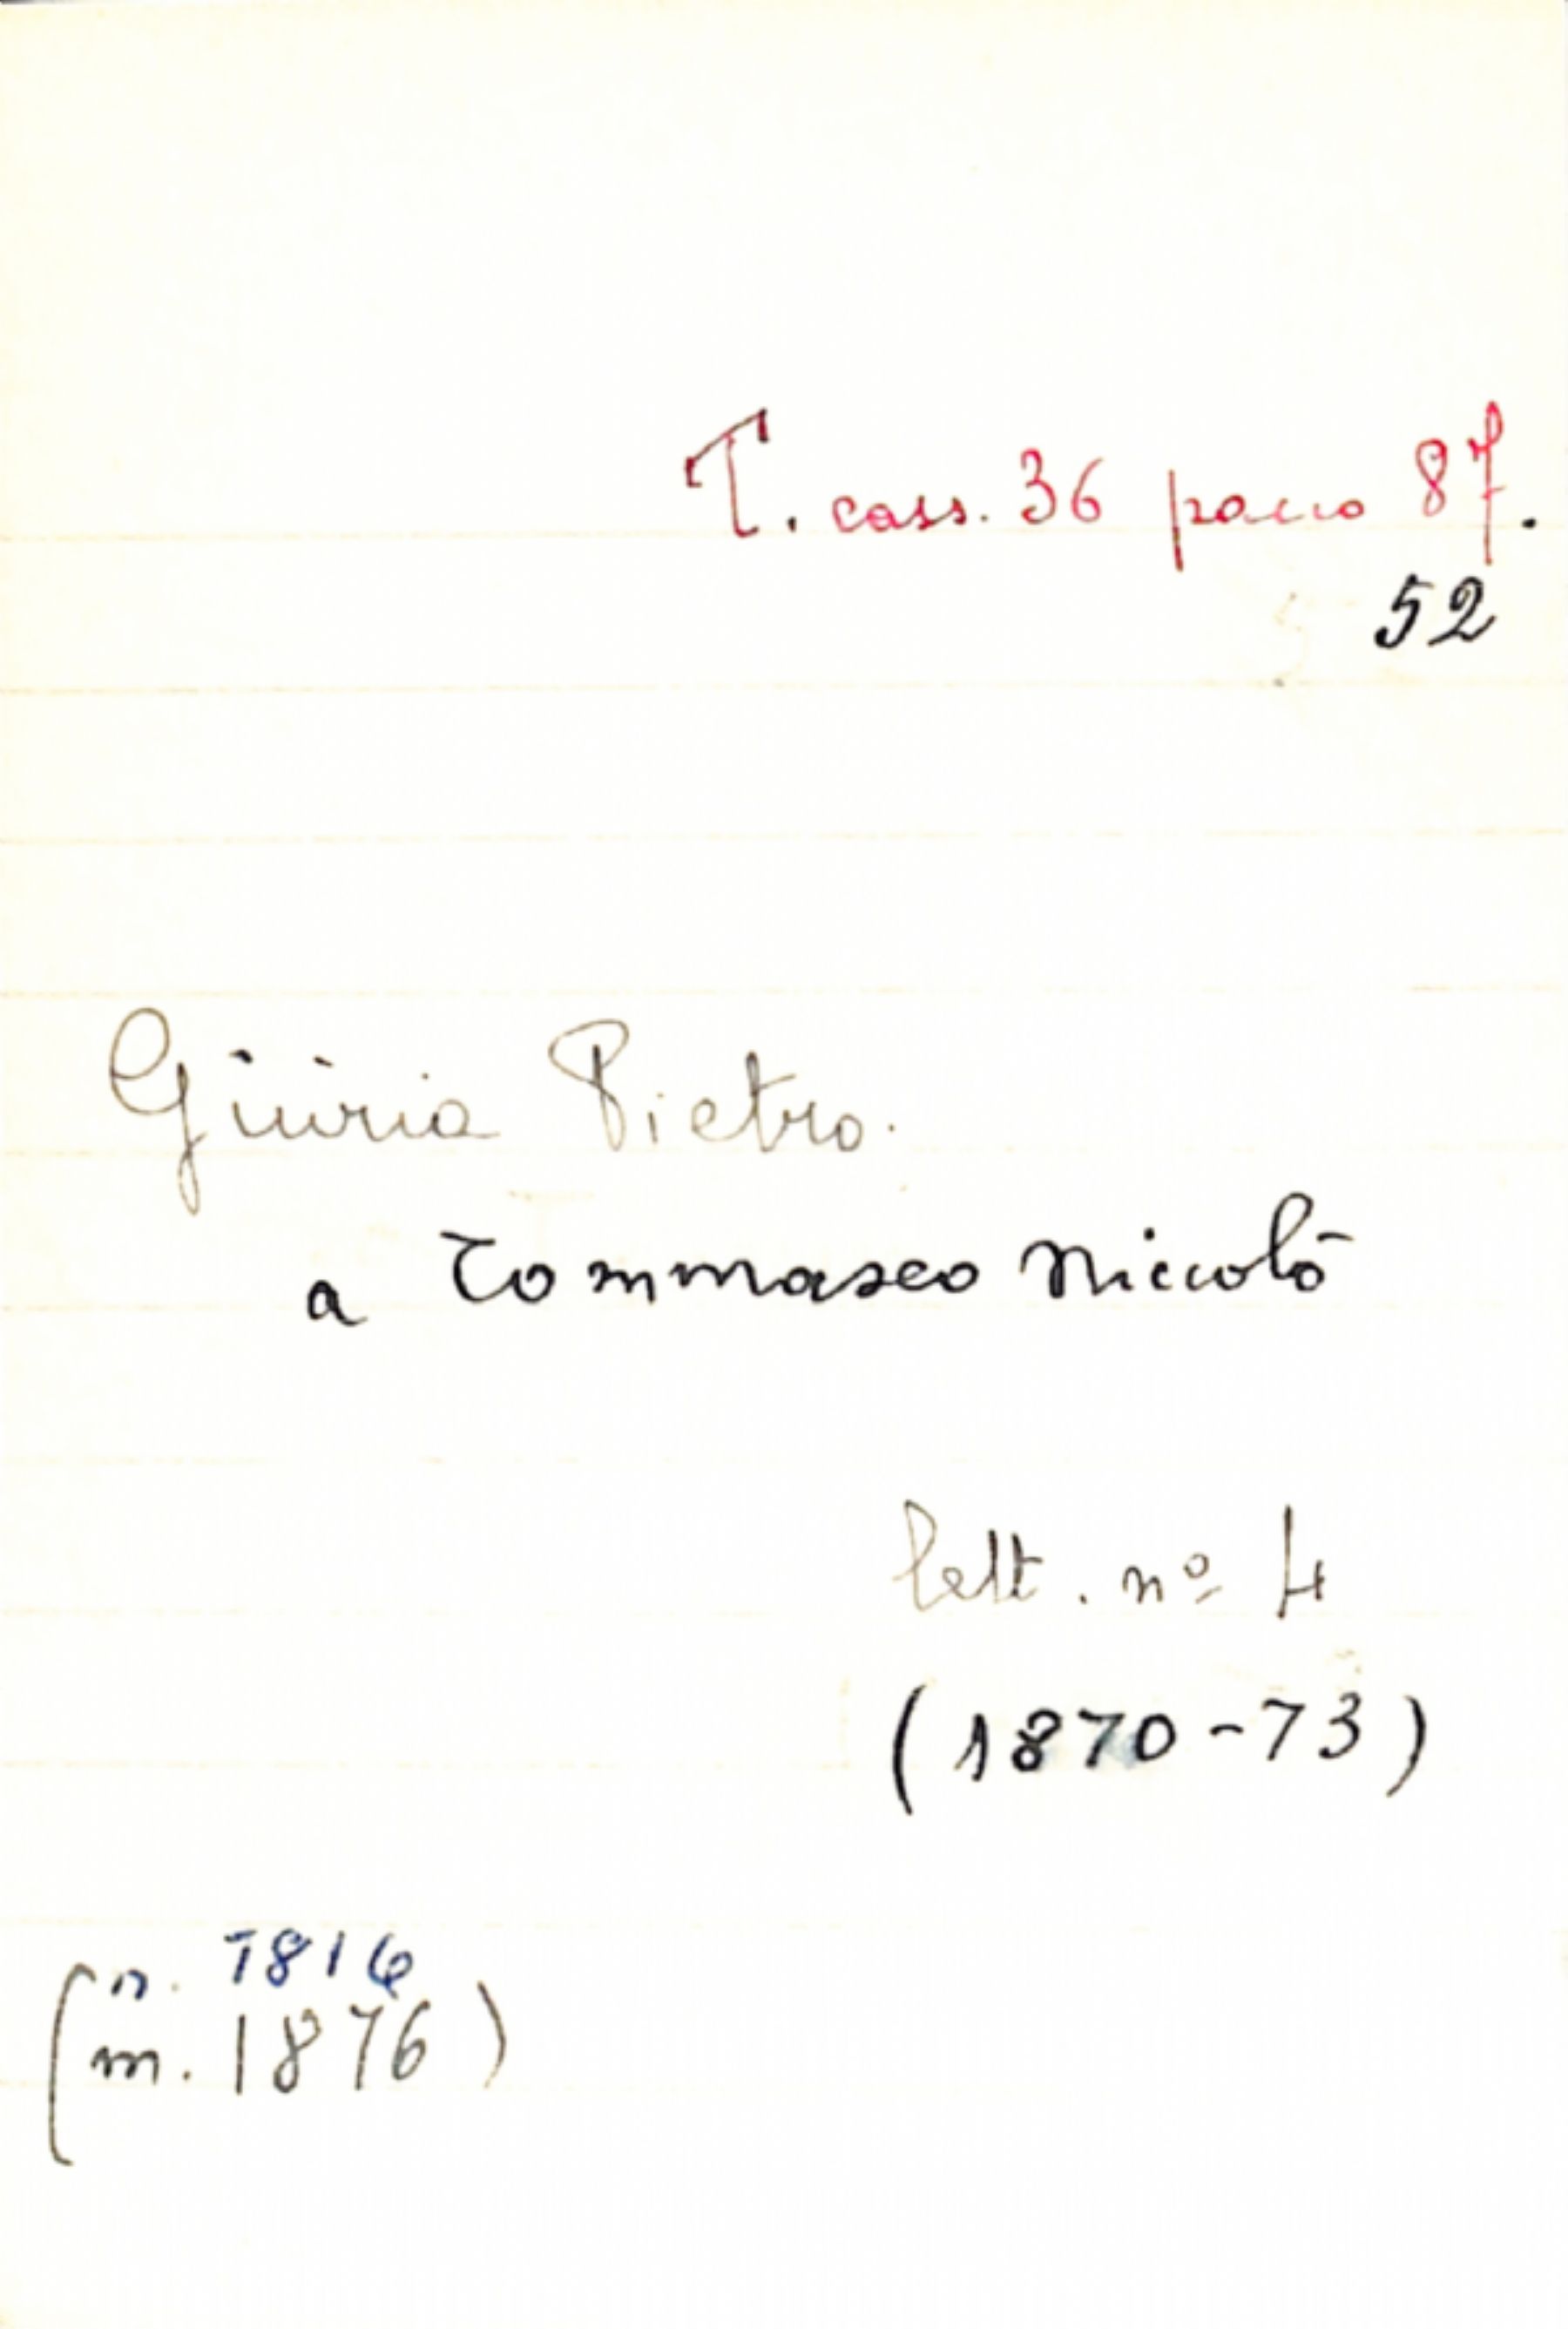 T. cass. 36 pacco 87.
52
Giuria Pietro.
a Tommaseo Niccolò
lett. nº 4
(1870-73)
(n. 1816
m. 1876)